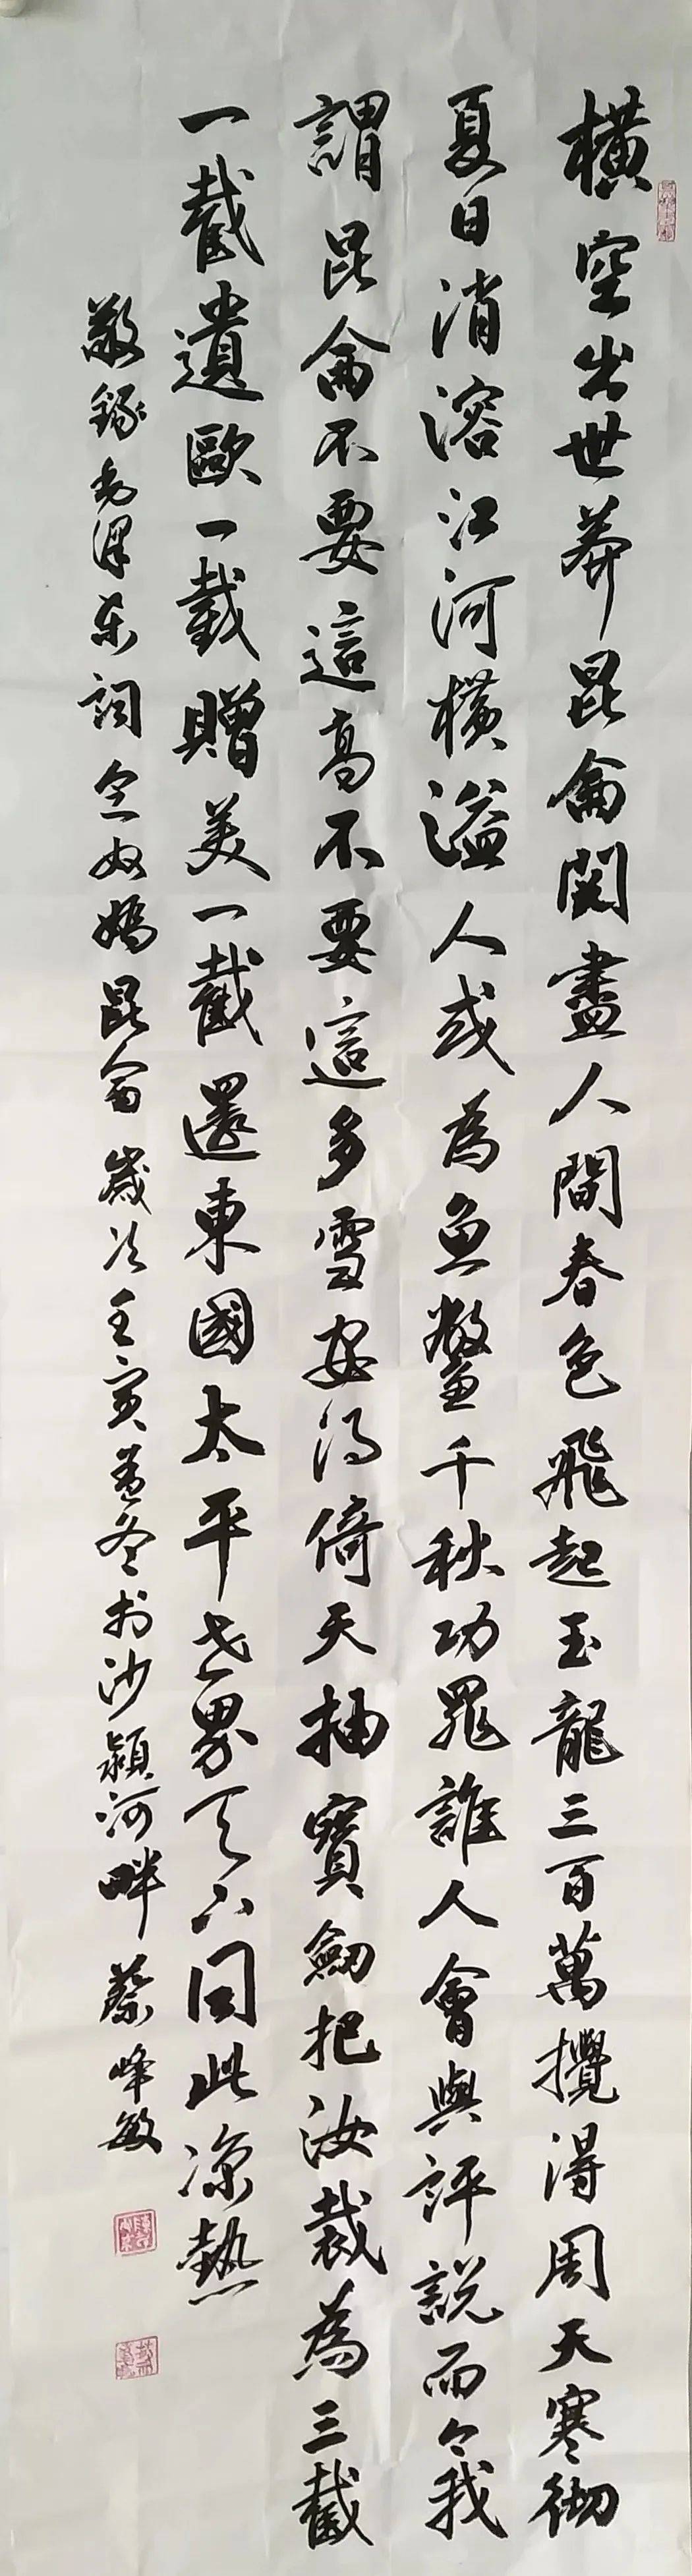 橫空出世莽昆侖閱盡人間春色飛起玉龍三百萬攪得周天寒徹
夏日消溶江河橫溢人或為魚鱉千秋功罪誰人會與評說而今我
謂昆侖不要這高不要這多雪安得倚天抽寶劍把汝裁為三截
一截遺歐一截贈美一截還東國太平世界天下同此涼熱
敬錄毛澤東詞念奴嬌昆侖歲次壬寅孟冬於沙潁河畔蔡峰敏